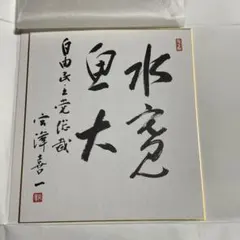 水寛
魚大
自由民主党総裁
宮澤喜一